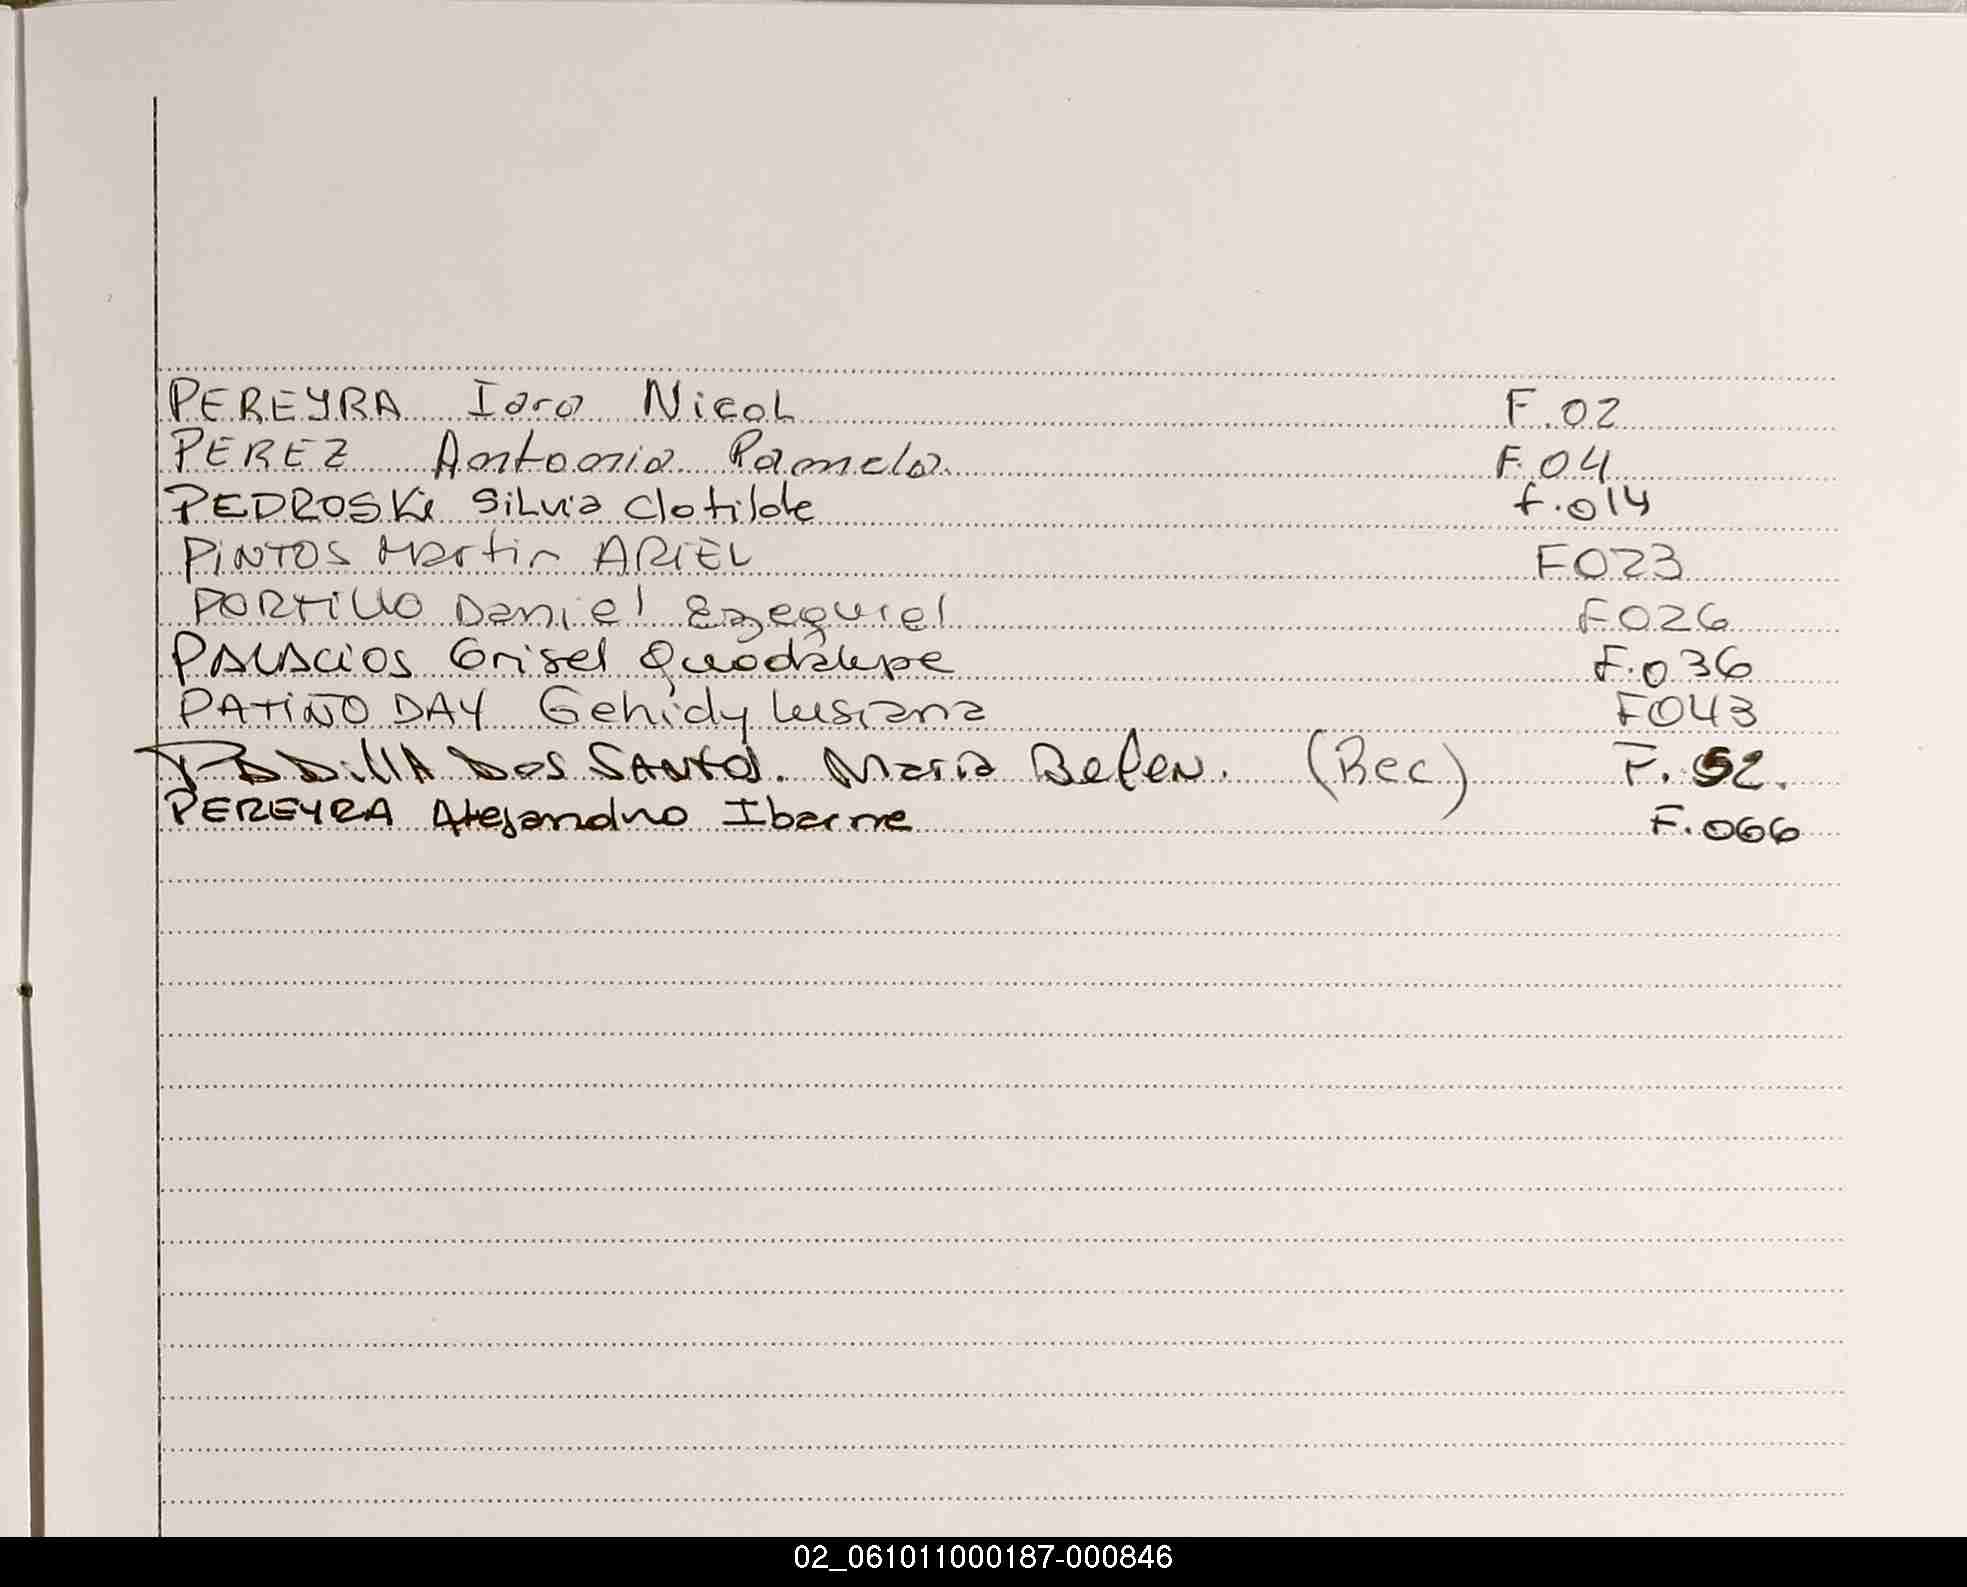 PEREYRA Iara Nicol F.02
PEREZ Antonia Pamela F.04
PEDROSKi SiLvia Clotilde F.014
PiNTOS Martin ARIEL F023
PORTiLLO Daniel Ezequiel F026
PALACiOS Grisel Guadalupe F.036
PATiÑO DAY Gehidy Lusiana F043
PADiLLA Dos SANTOS. Maria Belen. (Rec) F. 52.
PEREYRA Alejandro F.066
02_061011000187-000846